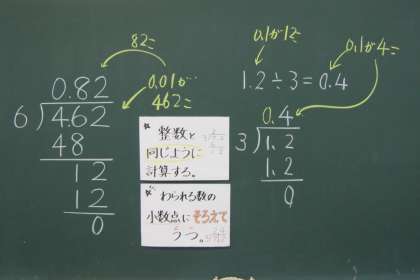 82こ
0.01が…
462こ
0.82
6)4.62
48
12
12
0
整数と
同じように
計算する。
わられる数の
小数点にそろえて
うつ。
0.1が12こ
0.1が4こ
1.2÷3=0.4
0.4
3)1.2
1.2
0